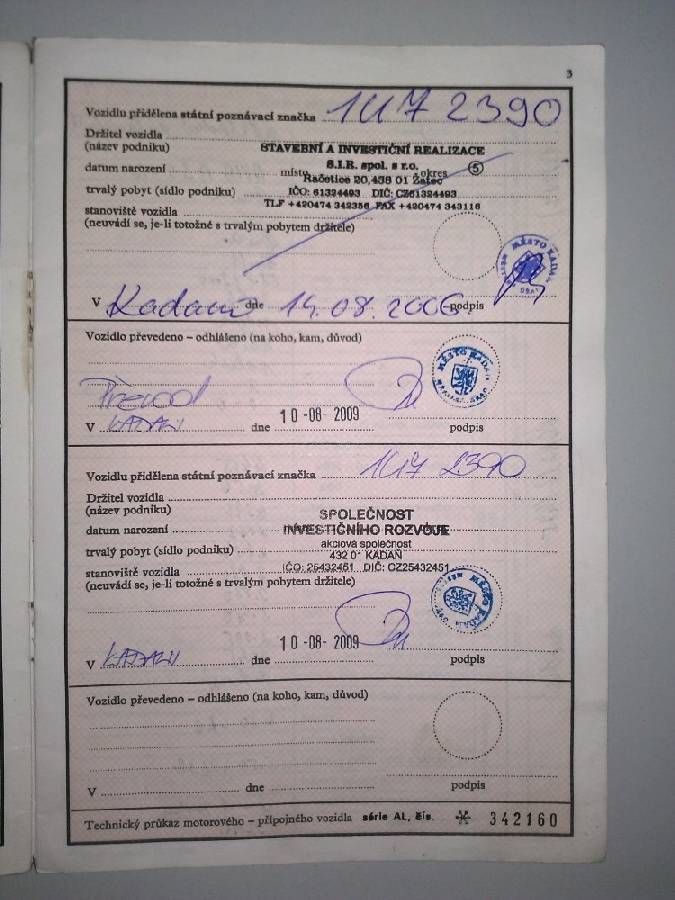 3
Vozidlu přidělena státní poznávací značka 1U7 2390
Držitel vozidla
(název podniku) STAVEBNÍ A INVESTIČNÍ REALIZACE
S.I.R. spol. s r.o. 5
datum narození místo okres
Račetice 20, 438 01 Žatec
trvalý pobyt (sídlo podniku) IČO: 61324493 DIČ: CZ61324493
stanoviště vozidla TLF +420474 342356 FAX +420474 343116
(neuvádí se, je-li totožné s trvalým pobytem držitele)
MĚSTO KADAŇ
V Kadani dne 14.08.2006 podpis
Vozidlo převedeno – odhlášeno (na koho, kam, důvod)
MĚSTO KADAŇ
Převod
V KADANI dne 10-08-2009 podpis
Vozidlu přidělena státní poznávací značka 1U7 2390
Držitel vozidla
(název podniku) SPOLEČNOST
datum narození INVESTIČNÍHO ROZVOJE
akciová společnost
trvalý pobyt (sídlo podniku) 432 01 KADAŇ
stanoviště vozidla IČO: 25432451 DIČ: CZ25432451
(neuvádí se, je-li totožné s trvalým pobytem držitele)
MĚSTO KADAŇ
V KADANI dne 10-08-2009 podpis
Vozidlo převedeno – odhlášeno (na koho, kam, důvod)
V dne podpis
Technický průkaz motorového – přípojného vozidla série AL, čís. 342160